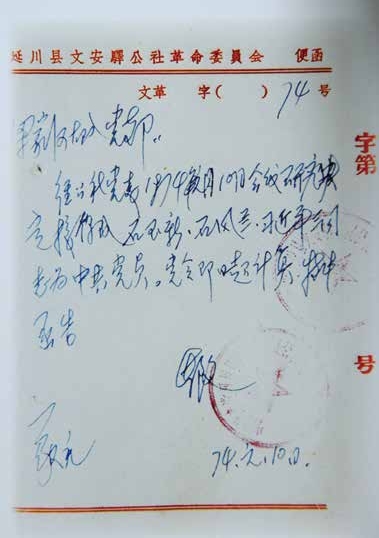 延川县文安驛公社革命委員会 便函
文革 字( ) 74 号
梁家河大队党支部:
经公社党委1974年元月10日会议研究决
定接收 石玉新、石凤兰、习近平三同
志为中共党员。党令即日起计算。特此
函告
此致
敬礼
74.元.10日.
字第
号